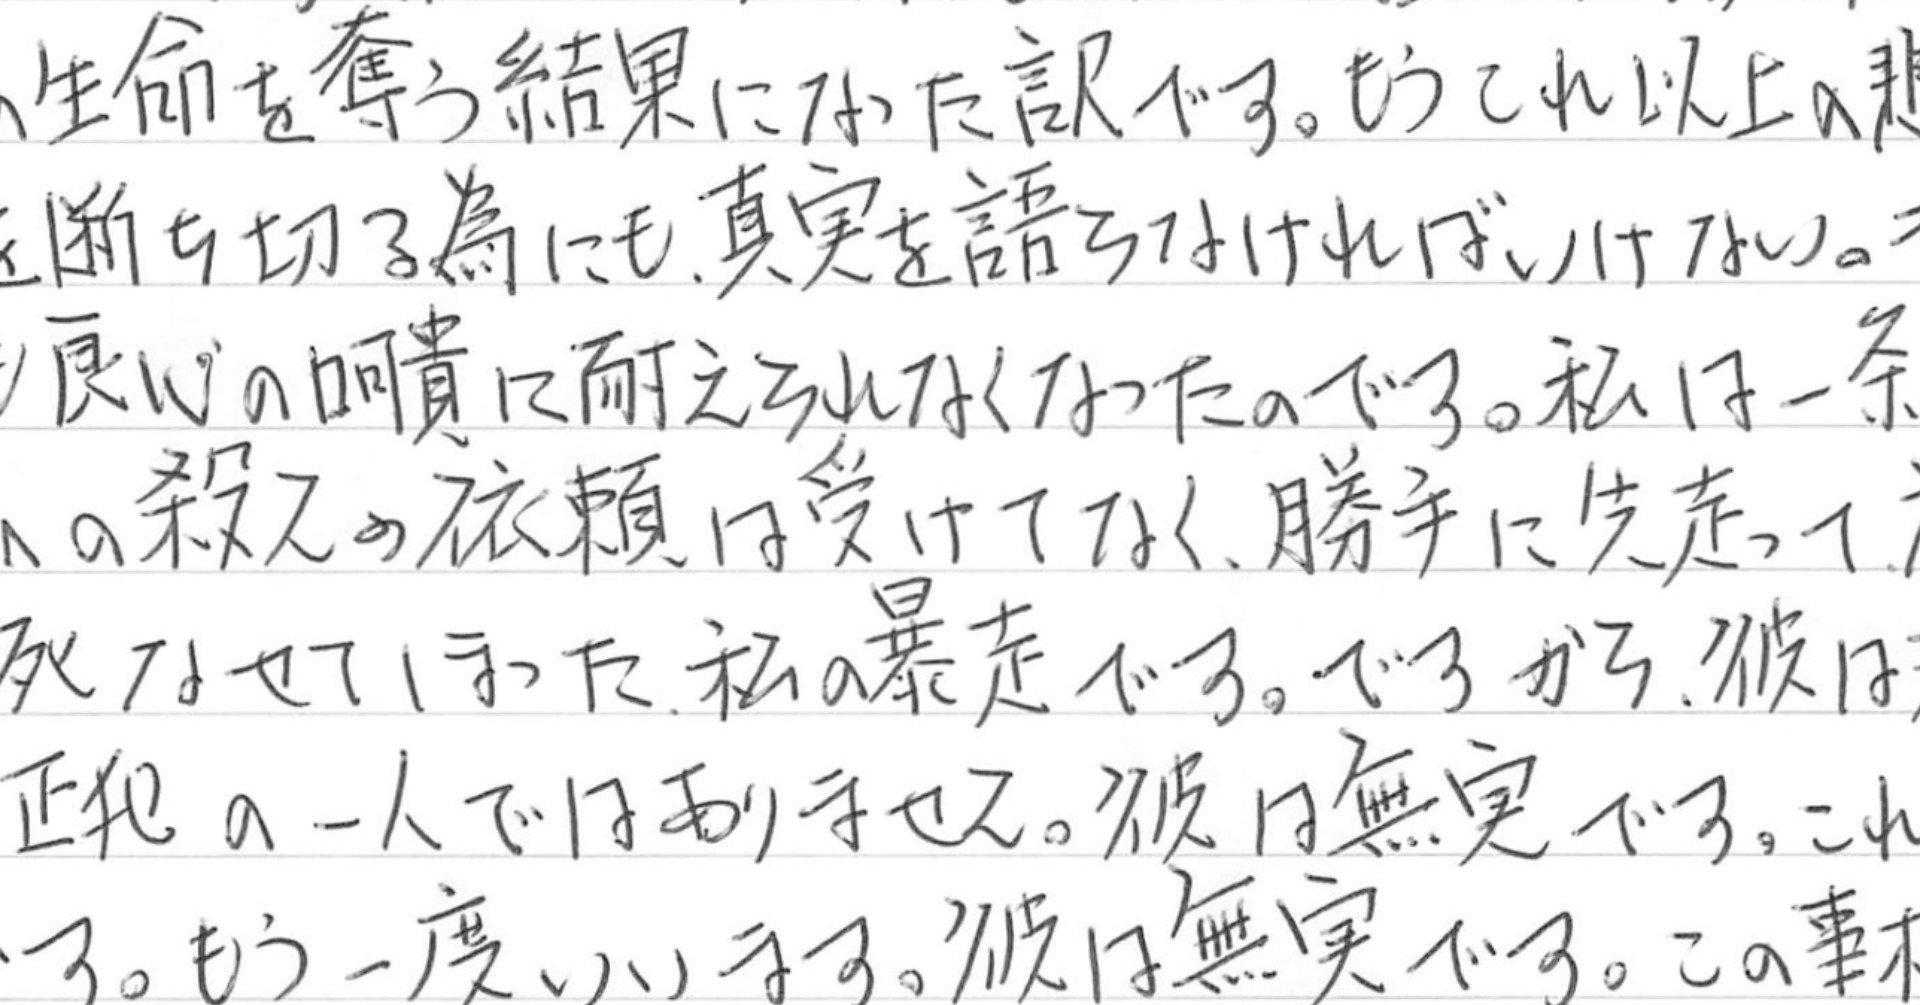 の生命を奪う結果になった訳です。もうこれ以上の悲
を断ち切る為にも、真実を語らなければいけない。そ
良心の呵責に耐えられなくなったのです。私は一条
への殺人の依頼は受けてなく、勝手に先走って、
死なせてしまった、私の暴走です。ですから、彼は
正犯の一人ではありません。彼は無実です。これ
す。もう一度いいます。彼は無実です。この事